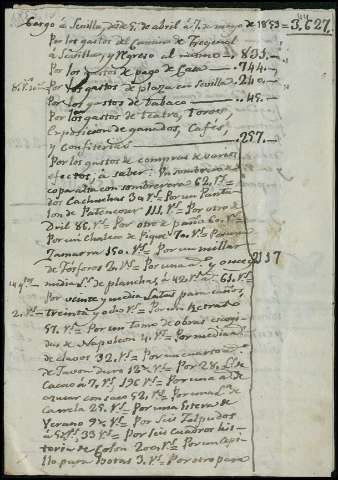 Cargo á Sevilla, desde 5, de abril á 7, de mayo de 1853 = 3,627.
Por los gastos del Camino de Trogenal
á Sevilla, y regreso al mismo — 835.—
Por los gastos de pago de Casa — 744.—
Por los gastos de plaza en Sevilla — 240.—
Por los gastos de tabaco — 45.—
Por los gastos de teatro, Toros,
Exposicion de ganados, Cafés,
y confiterias — 257.—
Por los gastos de compras de varios
efectos, á saber: Un sombrero de
copa alta con sombrerera 62. rs =
dos Cachuchas 30. rs = Por un Panta
lon de Patencour 111. rs = Por otro de
Dril 86. rs = Por otro de paño 60. rs =
Por un Chaleco de Piqué 70. rs = Por una
Zamarra 150. rs = Por un millar 2117
de fósforos 2. rs = Por una @, y once y
media L.s de planchas, á 42. rs = 61. rs =
Por veinte y media latas para caños,
Treinta y ocho rs = Por un Retrato
57. rs = Por un tomo de obras escogi
das de Napoleon 4. rs = Por media @
de clavos 32. rs = Por un cuarto
de Javon duro 12 rs = Por 28, L.s de
Cacao á 7. rs 196 rs = Por una @ de
azucar con saco 52. rs = Por una L.a de
Canela 25. rs = Por una Estera de
Verano 92 rs = Por seis Felpudos
33 rs = Por seis cuadros his-
toria de Colon 200. rs = Por un cepi-
llo para botas 3. rs = Por otro para